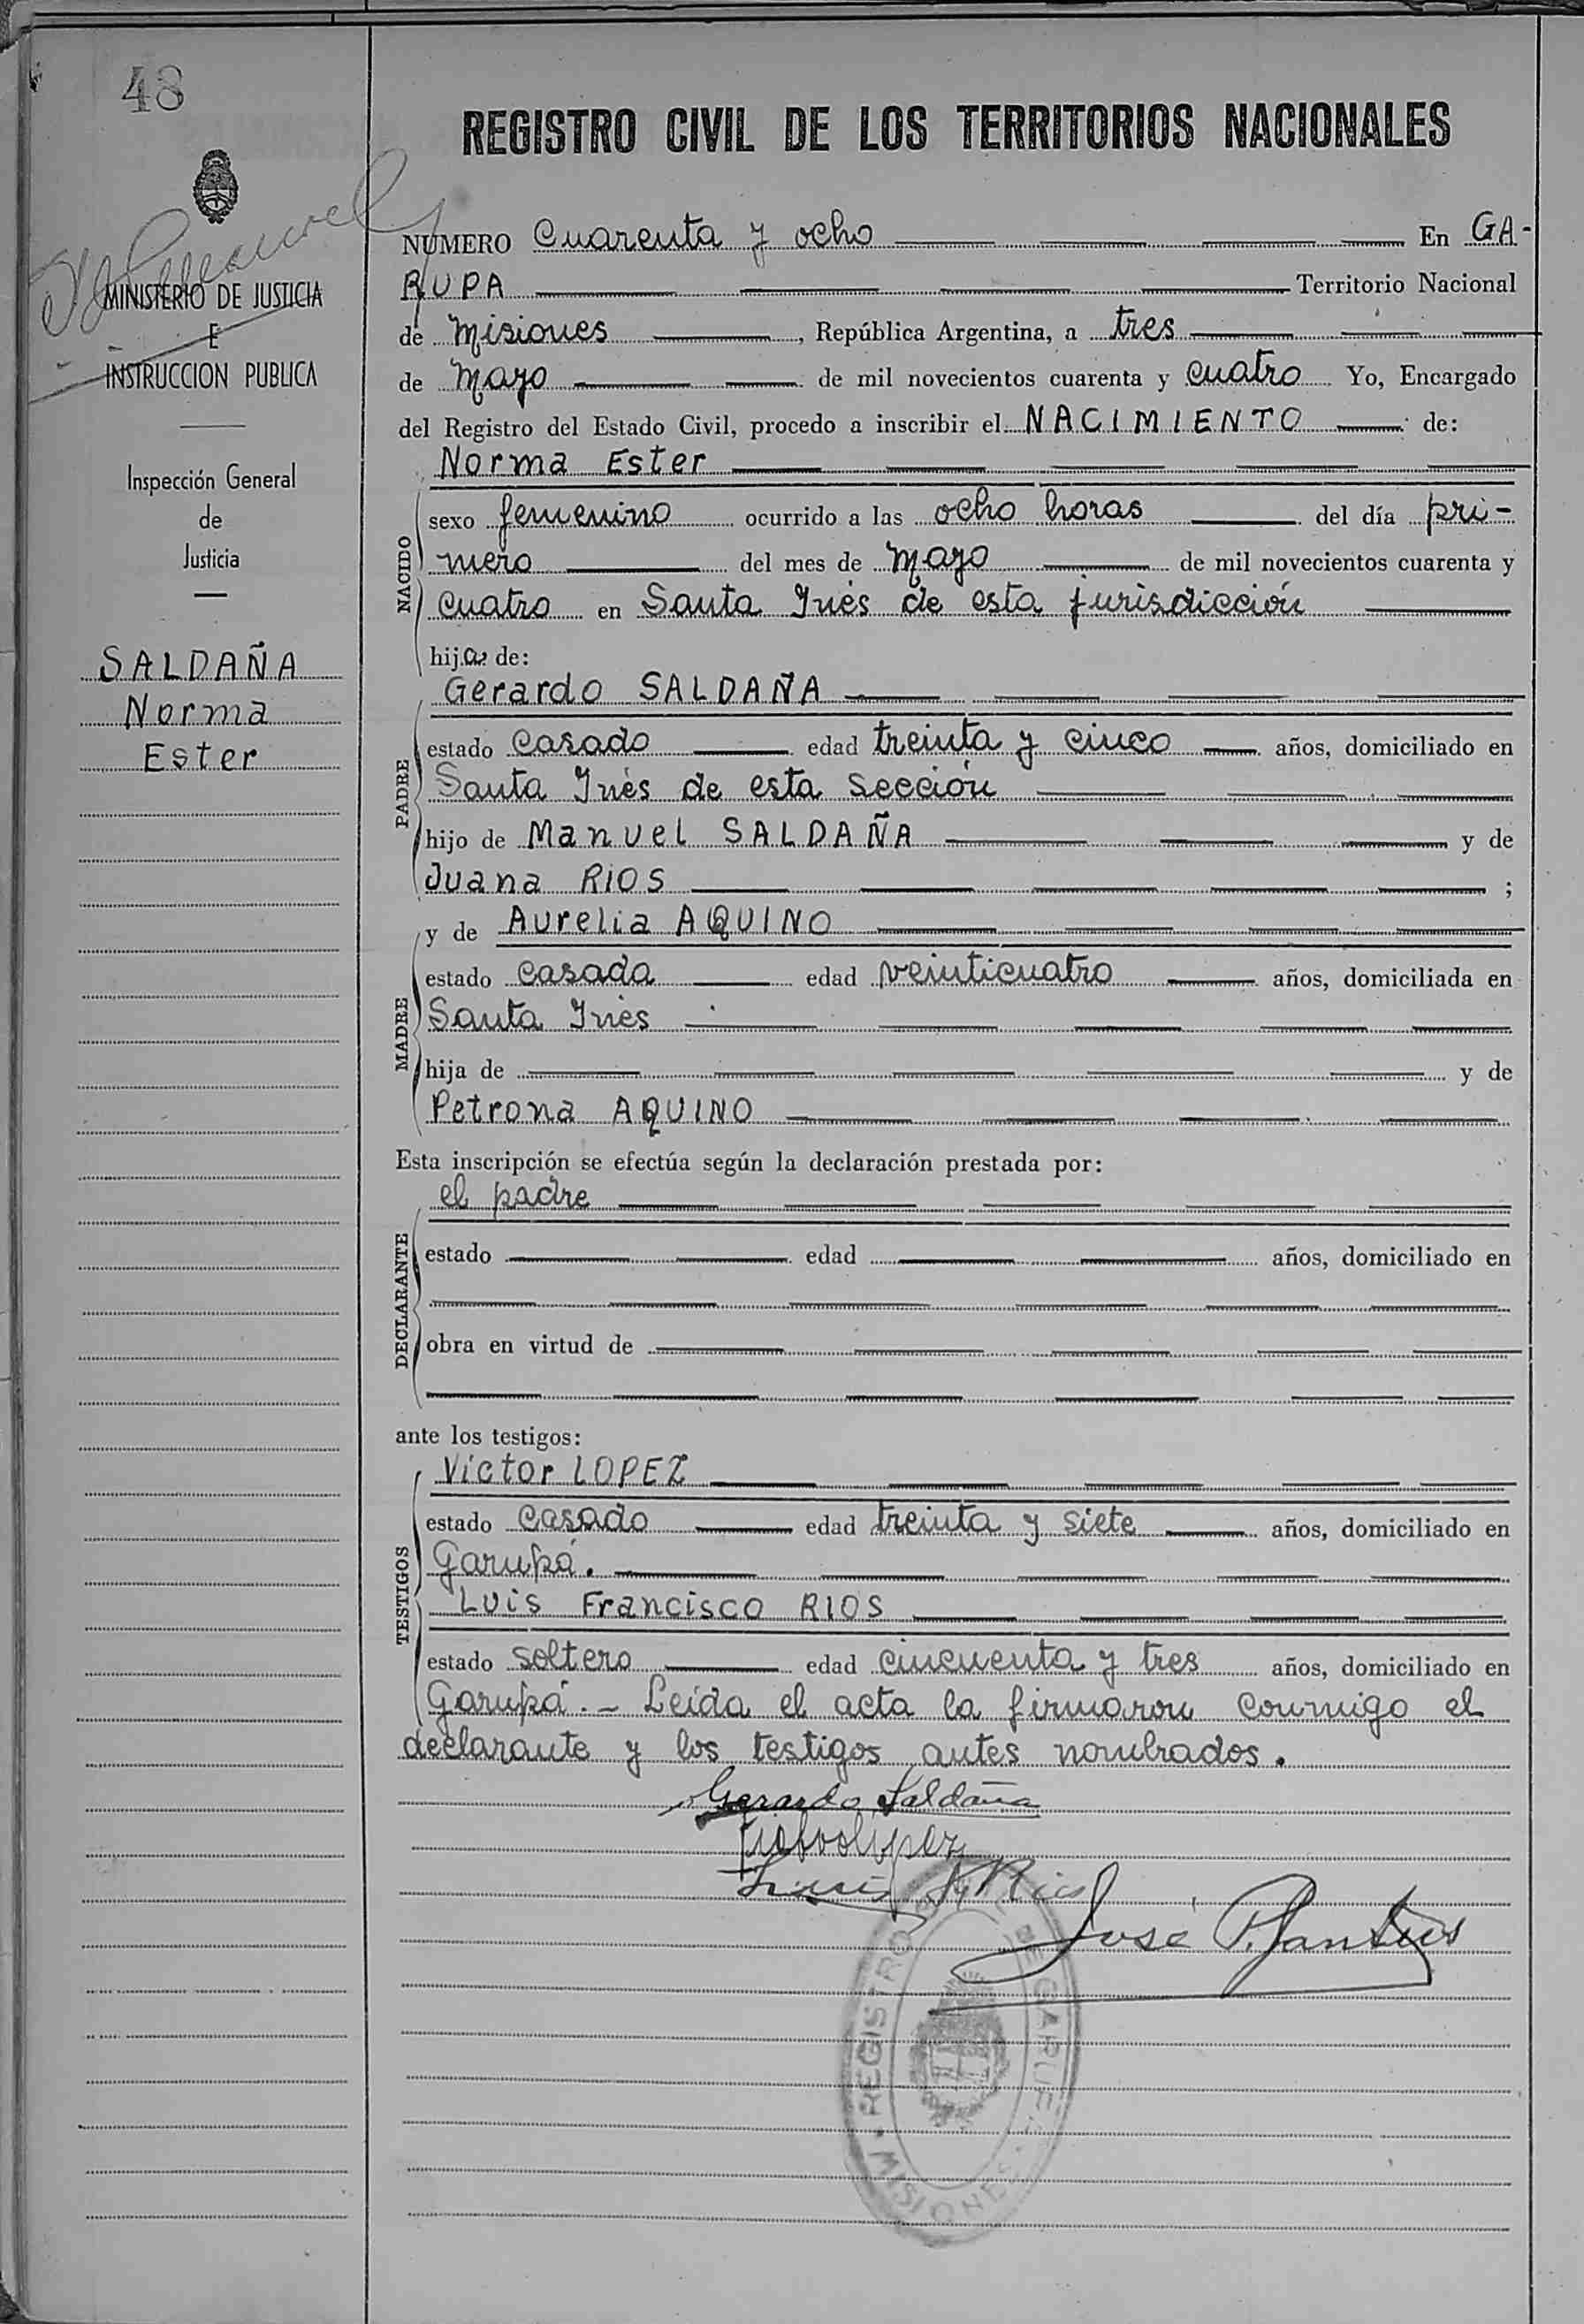 48
REGISTRO CIVIL DE LOS TERRITORIOS NACIONALES
MINISTERIO DE JUSTICIA
E
INSTRUCCION PUBLICA
Inspección General
de
Justicia
SALDAÑA
Norma
Ester
NUMERO Cuarenta y ocho En GA-
RUPA Territorio Nacional
de Misiones, República Argentina, a tres
de Mayo de mil novecientos cuarenta y cuatro Yo, Encargado
del Registro del Estado Civil, procedo a inscribir el NACIMIENTO de:
Norma Ester
NACIDO
sexo femenino ocurrido a las ocho horas del día pri-
mero del mes de Mayo de mil novecientos cuarenta y
cuatro en Santa Inés de esta jurisdicción
hija de:
Gerardo SALDAÑA
PADRE
estado casado edad treinta y cinco años, domiciliado en
Santa Inés de esta sección
hijo de Manuel SALDAÑA y de
Juana RIOS ;
y de Aurelia AQUINO
MADRE
estado casada edad veinticuatro años, domiciliada en
Santa Inés
hija de y de
Petrona AQUINO
Esta inscripción se efectúa según la declaración prestada por:
el padre
DECLARANTE
estado edad años, domiciliado en
obra en virtud de
ante los testigos:
Víctor LOPEZ
TESTIGOS
estado casado edad treinta y siete años, domiciliado en
Garupá.
Luis Francisco RIOS
estado soltero edad cincuenta y tres años, domiciliado en
Garupá.- Leída el acta la firmaron conmigo el
declarante y los testigos antes nombrados.
Gerardo Saldaña
Luis F. Rios
José P.
REGISTRO CIVIL DE GARUPA - MISIONES